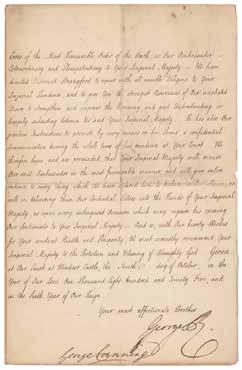 Cross of the Most Honourable Order of the Bath, as Our Ambassador
Extraordinary and Plenipotentiary to Your Imperial Majesty. We have
directed Viscount Strangford to repair with all possible Diligence to Your
Imperial Residence, and to give You the strongest Assurances of Our unabated
Desire to strengthen and improve the Harmony and good Understanding so
happily subsisting between Us and Your Imperial Majesty. He has also Our
positive Instructions to promote, by every means in his Power, a confidential
Communication during the whole time of his residence at Your Court. We
therefore hope and are persuaded, that Your Imperial Majesty will receive
Our said Ambassador in the most favourable manner, and will give entire
credence to every thing which
well in delivering these Our Credential Letters into the Hands of Your Imperial
Majesty, as upon every subsequent Occasion which may require his opening
Our Sentiments to Your Imperial Majesty. And so, with Our hearty Wishes
for Your constant Health and Prosperity, We most earnestly recommend Your
Imperial Majesty to the Protection and Blessing of Almighty God. Given
at Our Court at Windsor Castle, the Ninth day of October, in the
Year of Our Lord One Thousand Eight Hundred and Twenty Five, and
in the Sixth Year of Our Reign.
Your most affectionate Brother
George R.
George Canning